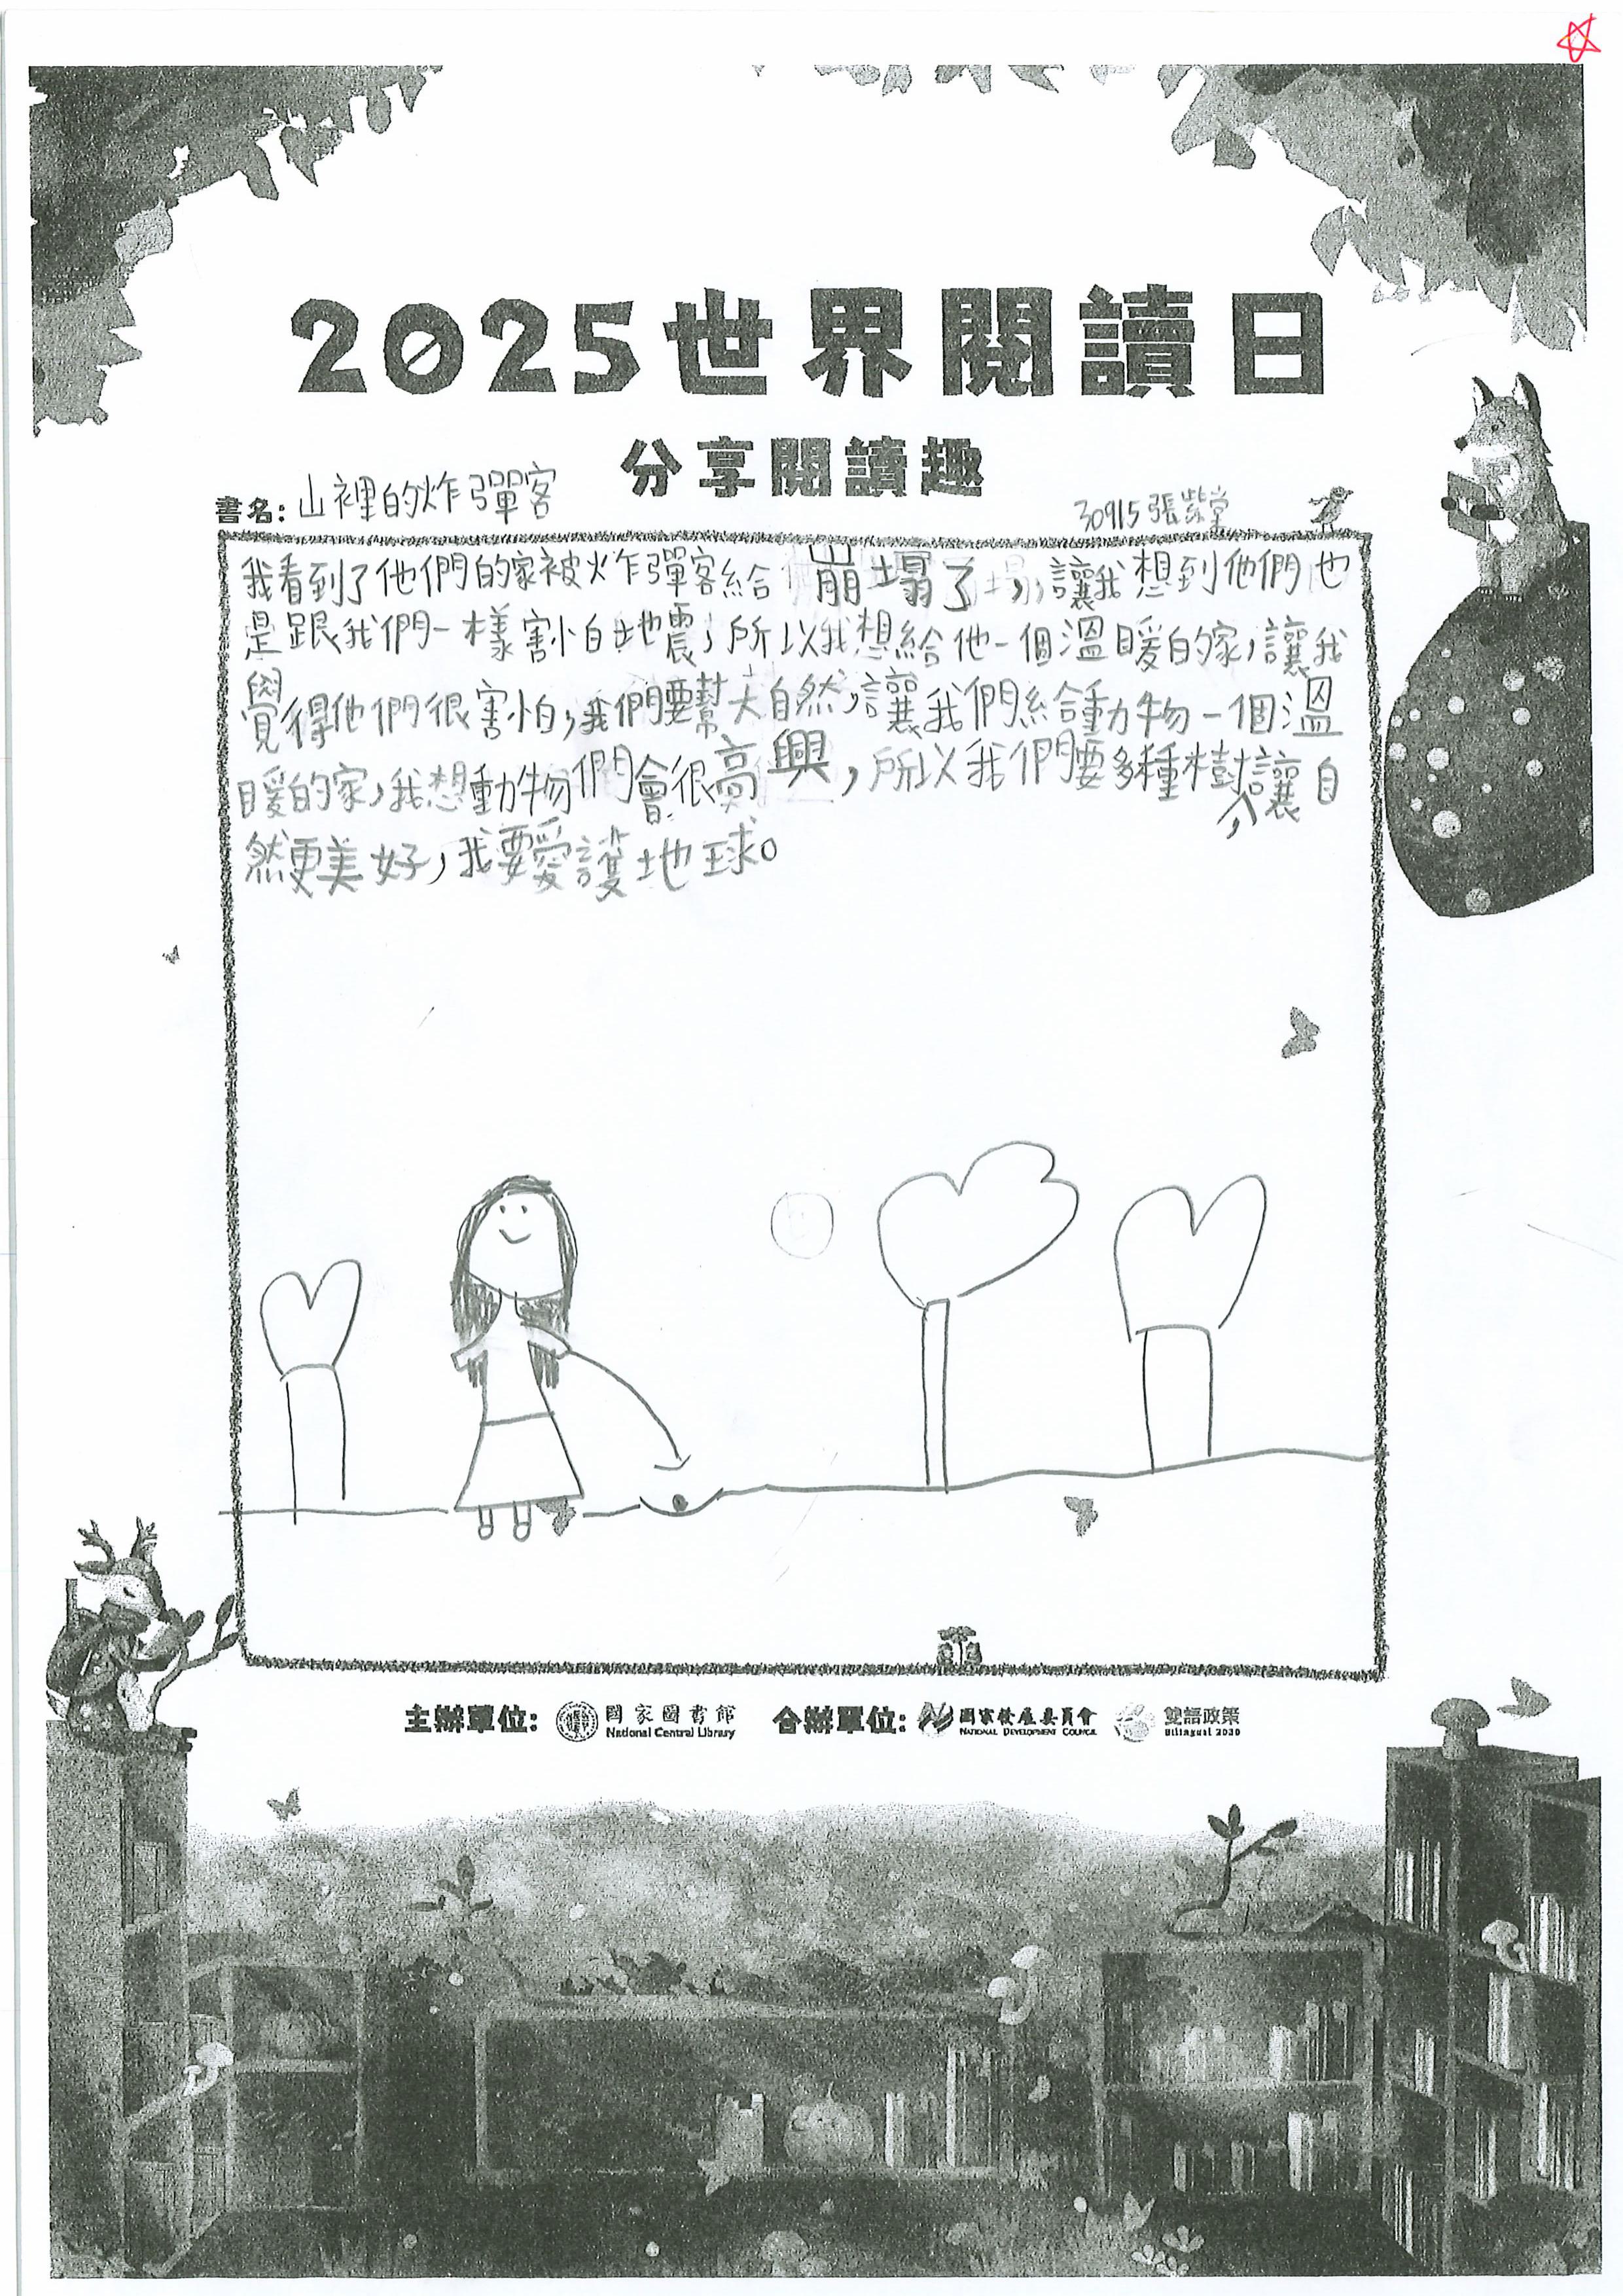 2025世界閱讀日
分享閱讀趣
書名：山裡的炸彈客
30915張紫堂
我看到了他們的家被炸彈客給崩塌了，讓我想到他們也
是跟我們一樣害怕地震，所以我想給他一個溫暖的家，讓我
覺得他們很害怕，我們要幫大自然，讓我們給動物一個溫
暖的家，我想動物們會很高興，所以我們要多種樹，讓自
然更美好，我要愛護地球。
主辦單位：國家圖書館 National Central Library 合辦單位：國家發展委員會 NATIONAL DEVELOPMENT COUNCIL 雙語政策 Bilingual 2030